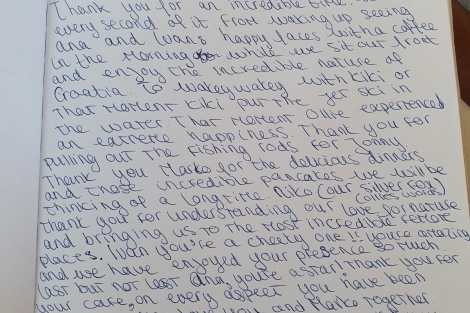 Thank you for an incredible time.
every second of it from waking up seeing
ana and Ivans happy faces with a coffee
in the morning while we sit out front
and enjoy the incredible nature of
Croatia. To wakeywakey with Kiki or
that moment Kiki put the jet ski in
the water that moment Ollie experienced
an extreme happiness. Thank you for
pulling out the fishing rods for Jonny
Thank you Marko for the delicious dinners
and those incredible pancakes we will be
thinking of a longtime. Niko (our silver fox)
thank you for understanding our love for nature
and bringing us to the most incredible remote
places. Ivan you're a cheeky one!! you're amazing
and we have enjoyed your presence so much
last but not least Ana, you're a star! thank you for
your care, on every aspect you have been
you and Marko together